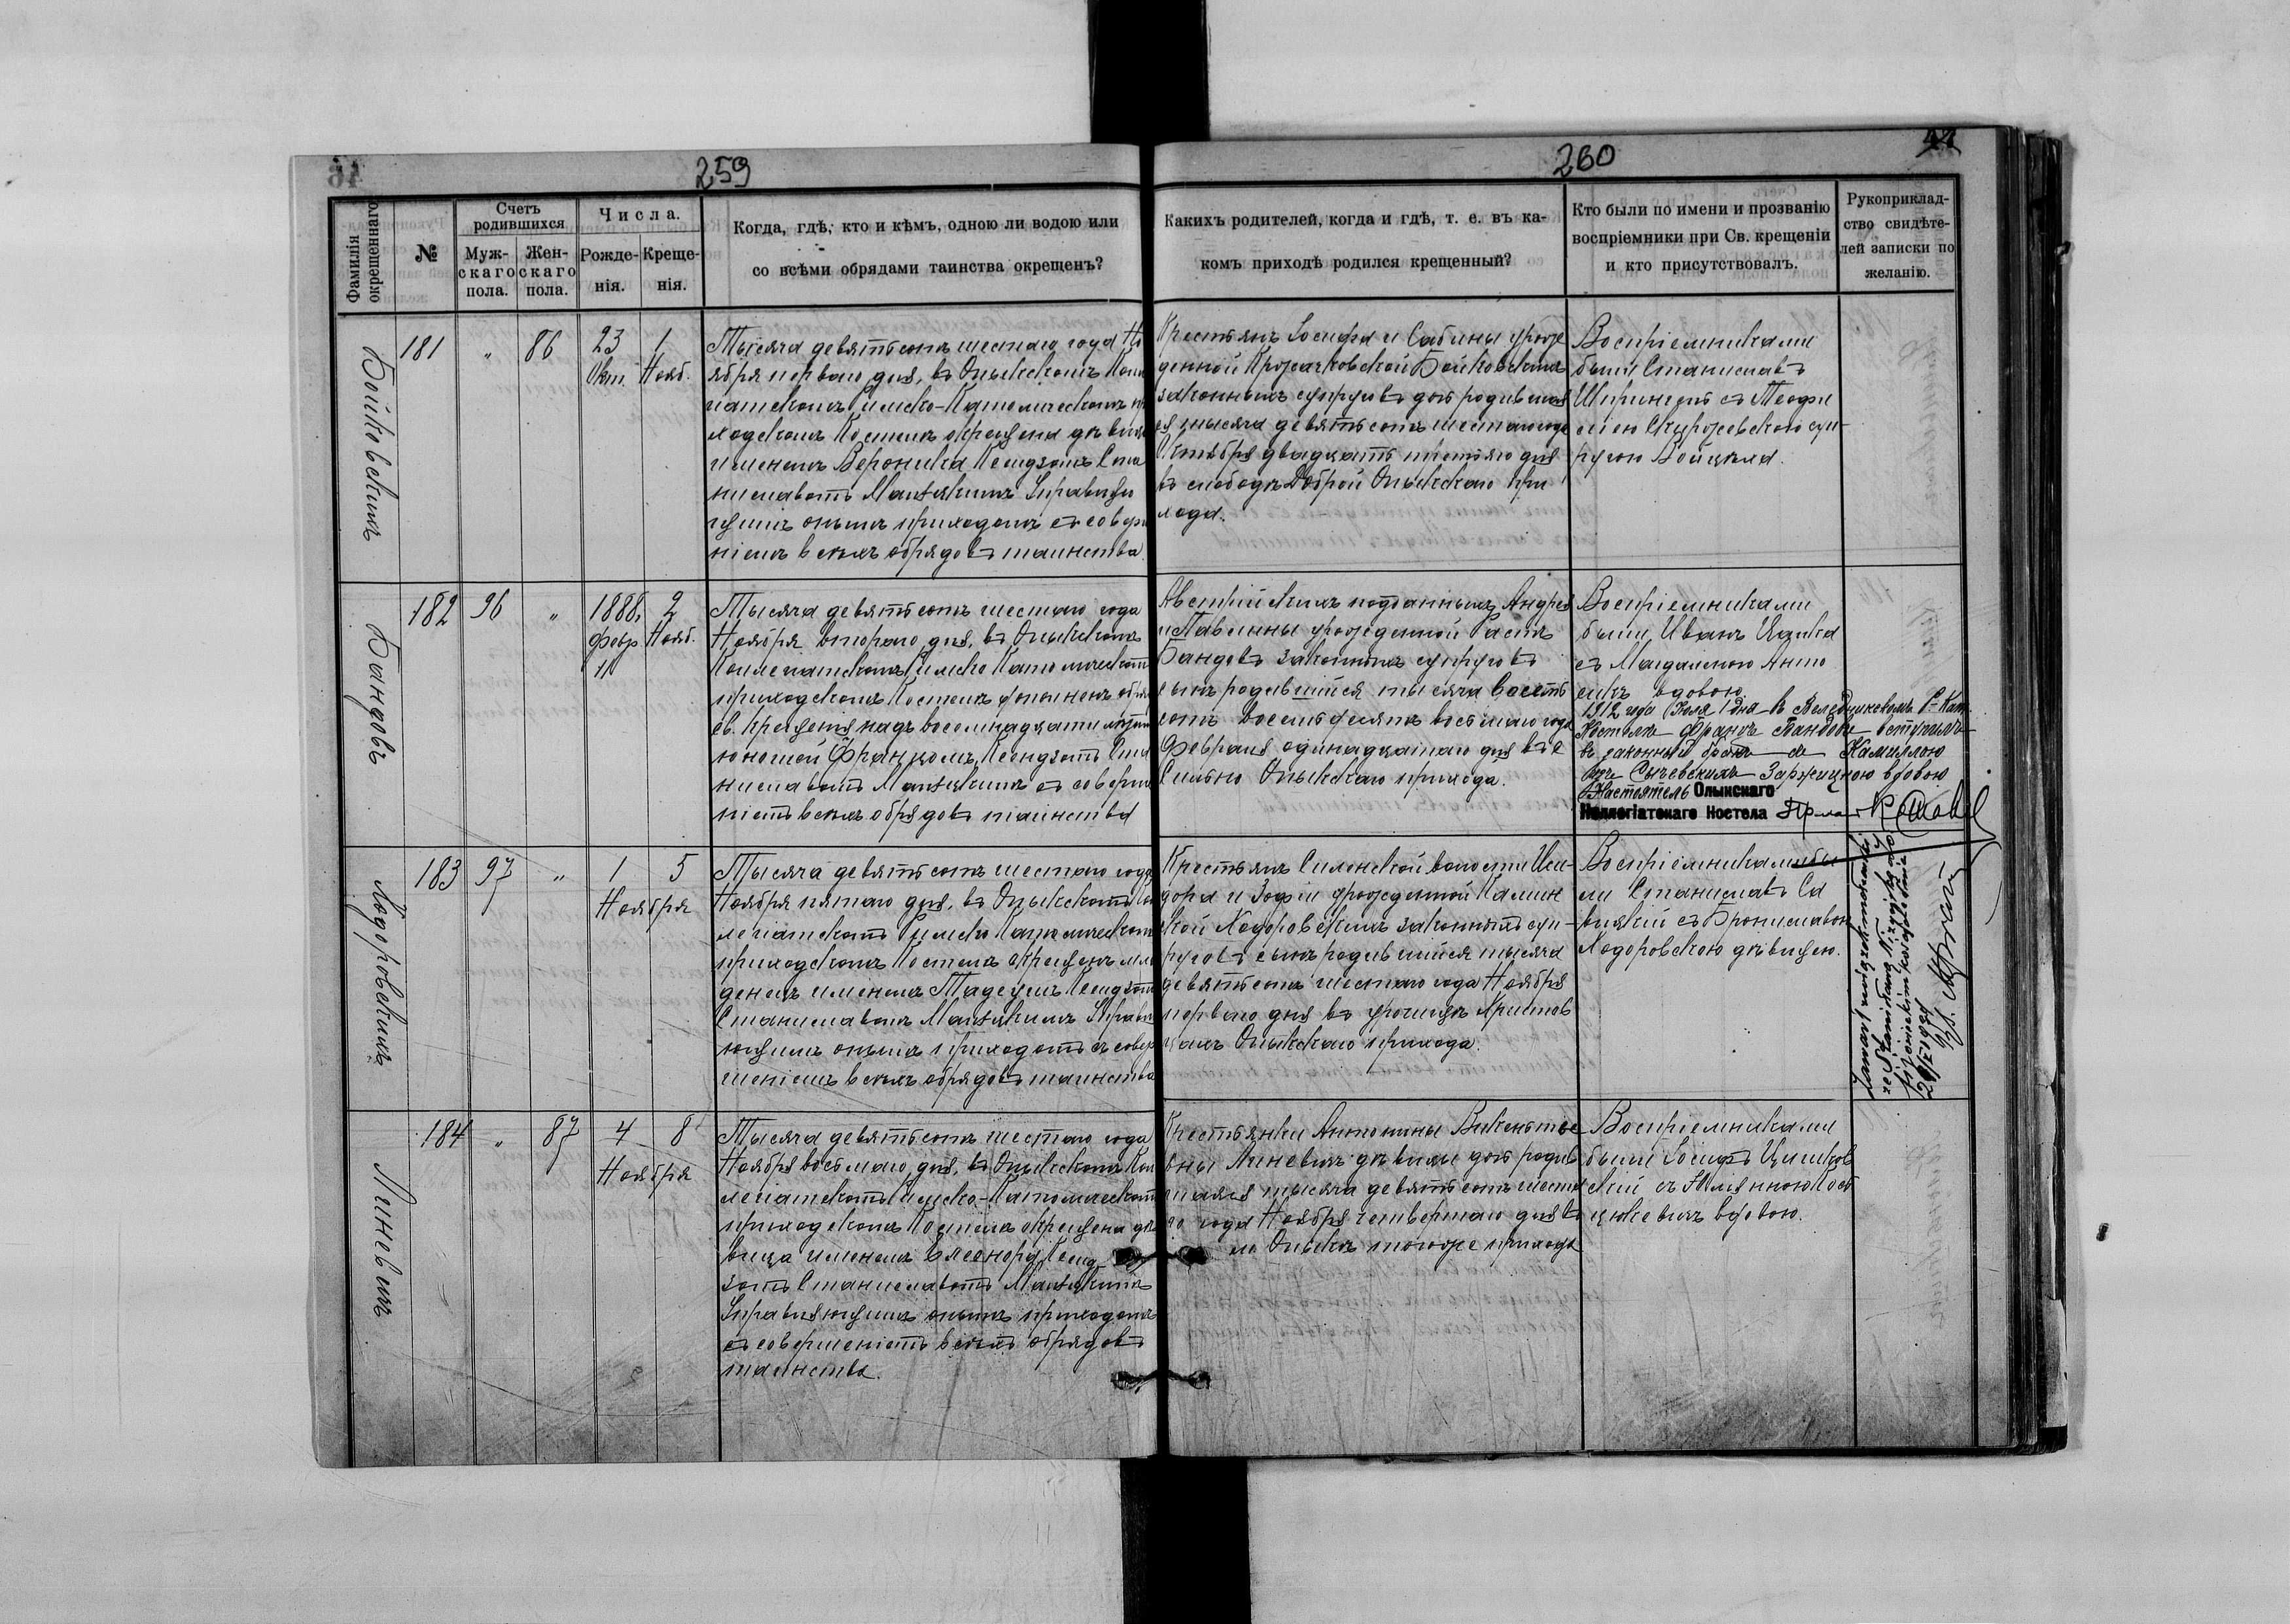 259
260
44
Фамилія окрещеннаго
№
Счетъ родившихся
Муж-скаго пола.
Жен-скаго пола.
Числа.
Рожде-нія.
Креще-нія.
Когда, гдѣ, кто и кѣмъ, одною ли водою или
со всѣми обрядами таинства окрещенъ?
Какихъ родителей, когда и гдѣ, т. е. въ ка-
комъ приходѣ родился крещенный?
Кто были по имени и прозванію
воспріемники при Св. крещеніи
и кто присутствовалъ.
Рукоприклад-
ство свидѣте-
лей записки по
желанію.
Бойковскихъ
181 " 86 23 Окт. 1 Нояб.
Тысяча девятьсотъ шестаго года Но
ября перваго дня, въ Олыкскомъ Кол
легіатскомъ Римско-Католическомъ при
ходскомъ Костелѣ окрещена дѣвица
именемъ Вероника Ксендзомъ Ста
ниславомъ
щимъ онымъ приходомъ съ соверше
ніемъ всѣхъ обрядовъ таинства.
Крестьянъ Іосифа и Сабины урож
денной Бойковскихъ
законныхъ супруговъ дочь родивша
ся тысяча девятьсотъ шестаго года
Октября двадцать третьяго дня
въ слободѣ Доброй Олыкскаго при
хода.
Воспріемниками
были Станиславъ
съ Теофи
лею суп
ругою Войцеха.
Бандовъ
182 96 " 1888. февр. 11 2 Нояб.
Тысяча девятьсотъ шестаго года
Ноября втораго дня, въ Олыкскомъ
Коллегіатскомъ Римско Католическомъ
приходскомъ Костелѣ дополненъ обрядъ
св. крещенія надъ восемнадцатилѣтнимъ
юношей Францомъ, Ксендзомъ Ста
ниславомъ съ соверше
ніемъ всѣхъ обрядовъ таинства
Австрійскихъ подданныхъ Андрея
и Павлины урожденной
Бандовъ законныхъ супруговъ
сынъ родившійся тысяча восемь
сотъ восемьдесятъ восьмаго года
Февраля одинадцатаго дня въ с.
Сильно Олыкскаго прихода.
Воспріемниками
были Иванъ Цапка
съ Магдаленою
вдовою.
1912 года Іюля 1 дня въ Р.-Кат.
Костелѣ Францъ Бандовъ вступилъ
въ законный бракъ съ Камиллою
изъ Сычевскихъ вдовою
Настоятель Олыкскаго
Коллегіатскаго Костела
Ходоровскихъ
183 97 " 1 5 Ноября
Тысяча девятьсотъ шестаго года
Ноября пятаго дня, въ Олыкскомъ Кол
легіатскомъ Римско Католическомъ
приходскомъ Костелѣ окрещенъ мла
денецъ именемъ Тадеушъ Ксендзомъ
Станиславомъ Управля
ющимъ онымъ приходомъ съ совер
шеніемъ всѣхъ обрядовъ таинства
Крестьянъ Силенской волости Иси-
дора и Зофіи урожденной Калин
ской Ходоровскихъ законныхъ суп-
руговъ сынъ родившійся тысяча
девятьсотъ шестаго года Ноября
перваго дня въ урочищѣ Христов
цахъ Олыкскаго прихода.
Воспріемниками бы
ли Станиславъ Са
вицкій съ Брониславою
Ходоровскою дѣвицею.
Линевичъ
184 " 87 4 8 Ноября
Тысяча девятьсотъ шестаго года
Ноября восьмаго дня, въ Олыкскомъ Кол
легіатскомъ Римско-Католическомъ
приходскомъ Костелѣ окрещена дѣ
вица именемъ Елеонора Ксенд
зомъ Станиславомъ
Управляющимъ онымъ приходомъ
съ совершеніемъ всѣхъ обрядовъ
таинства.
Крестьянки Антонины Викентье
вны Линевичъ дѣвицы дочь родив
шаяся тысяча девятьсотъ шеста
го года Ноября четвертаго дня въ
м. Олыкѣ тогоже прихода
Воспріемниками
были Іосифъ
съ
вдовою.